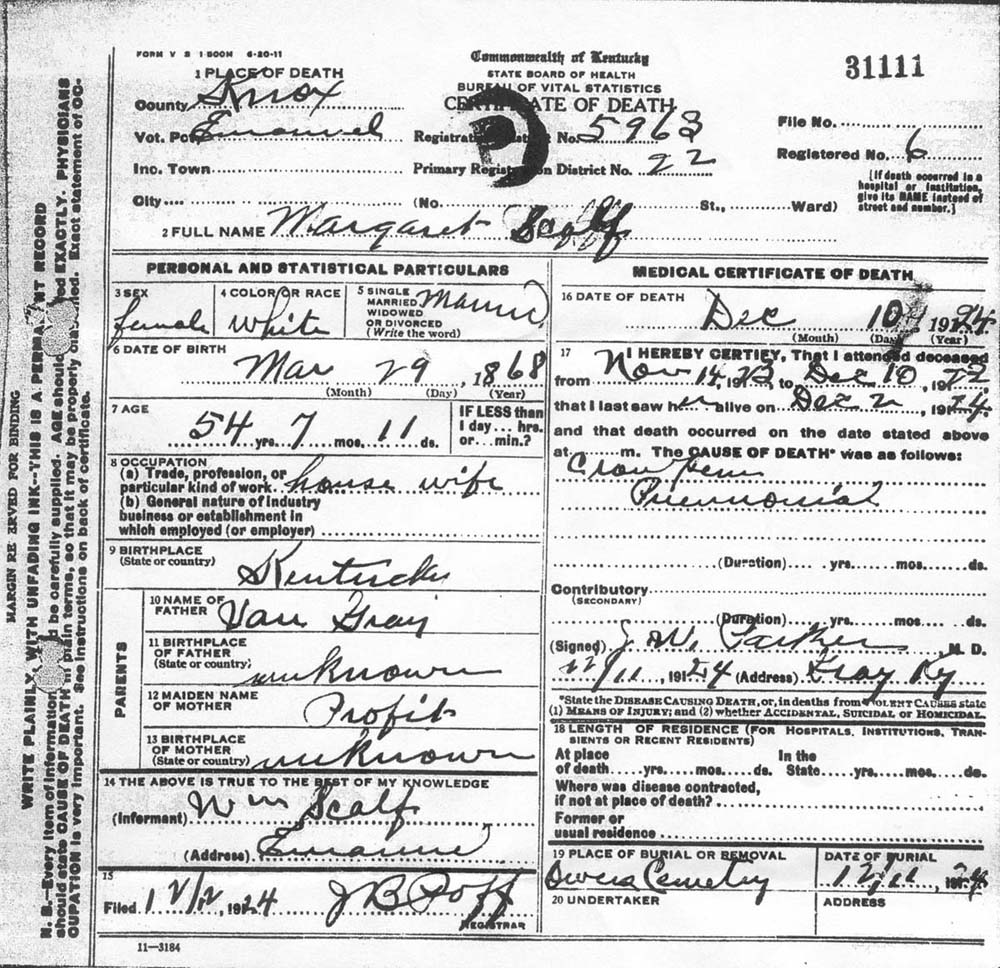 FORM V S 1-500M 6-20-11
Commonwealth of Kentucky
STATE BOARD OF HEALTH
BUREAU OF VITAL STATISTICS
CERTIFICATE OF DEATH
31111
1 PLACE OF DEATH
County Knox
Vot. Pct. Emanuel
Registration District No. 5963
File No.
Inc. Town
Primary Registration District No. 22
Registered No. 6
City
(No. St., Ward)
[If death occurred in a
hospital or institution,
give its NAME instead of
street and number.]
2 FULL NAME Margaret Scalf
PERSONAL AND STATISTICAL PARTICULARS
3 SEX
female
4 COLOR OR RACE
White
5 SINGLE
MARRIED
WIDOWED
OR DIVORCED
(Write the word)
Married
6 DATE OF BIRTH
Mar 29, 1868
(Month) (Day) (Year)
7 AGE
54 yrs. 7 mos. 11 ds.
IF LESS than
1 day... hrs.
or... min.?
8 OCCUPATION
(a) Trade, profession, or
particular kind of work house wife
(b) General nature of industry
business or establishment in
which employed (or employer)
9 BIRTHPLACE
(State or country)
Kentucky
PARENTS
10 NAME OF
FATHER
Gray
11 BIRTHPLACE
OF FATHER
(State or country)
unknown
12 MAIDEN NAME
OF MOTHER
Profit
13 BIRTHPLACE
OF MOTHER
(State or country)
unknown
14 THE ABOVE IS TRUE TO THE BEST OF MY KNOWLEDGE
(Informant) Wm Scalf
(Address) Emanuel
15
Filed 12/12, 1924 J B Poff
REGISTRAR
11—3184
MEDICAL CERTIFICATE OF DEATH
16 DATE OF DEATH
Dec 10, 1924
(Month) (Day) (Year)
17 I HEREBY CERTIFY, That I attended deceased
from Nov 14, 1923 to Dec 10, 1922
that I last saw her alive on Dec 2, 1924.
and that death occurred on the date stated above
at m. The CAUSE OF DEATH* was as follows:
Pneumonia
(Duration) yrs. mos. ds.
Contributory
(SECONDARY)
(Duration) yrs. mos. ds.
(Signed) J. W. Parker M. D.
12/11, 1924 (Address) Gray Ky
*State the DISEASE CAUSING DEATH, or, in deaths from VIOLENT CAUSES state
(1) MEANS OF INJURY; and (2) whether ACCIDENTAL, SUICIDAL or HOMICIDAL.
18 LENGTH OF RESIDENCE (FOR HOSPITALS, INSTITUTIONS, TRAN-
SIENTS OR RECENT RESIDENTS)
At place
of death yrs. mos. ds.
In the
State yrs. mos. ds.
Where was disease contracted,
if not at place of death?
Former or
usual residence
19 PLACE OF BURIAL OR REMOVAL
Owens Cemetery
DATE OF BURIAL
12/11, 1924
20 UNDERTAKER
ADDRESS
MARGIN RESERVED FOR BINDING
WRITE PLAINLY, WITH UNFADING INK--THIS IS A PERMANENT RECORD
N. B.—Every item of information should be carefully supplied. AGE should be stated EXACTLY. PHYSICIANS
should state CAUSE OF DEATH in plain terms, so that it may be properly classified. Exact statement of OC-
CUPATION is very important. See instructions on back of certificate.